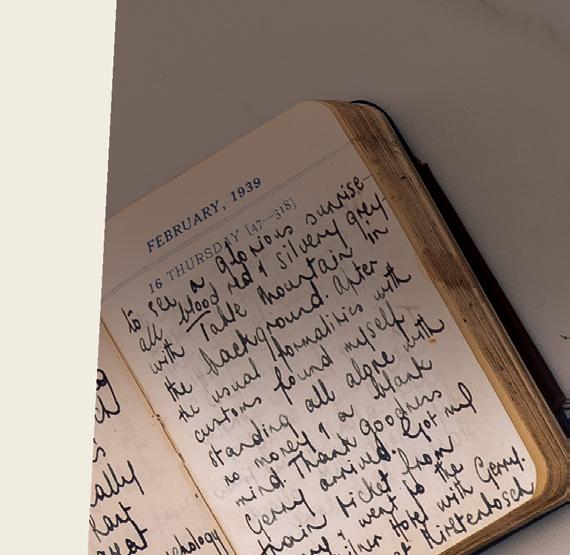 ally
hat
FEBRUARY, 1939
16 THURSDAY [47—318]
to see a glorious sunrise—
all blood red & silvery grey—
with Table Mountain in
the background. After
the usual formalities with
customs found myself
standing all alone with
no money & a blank
mind. Thank goodness
Gerry arrived. Got my
train ticket from
I went to the
Hotel with Gerry.
Kirstenbosch